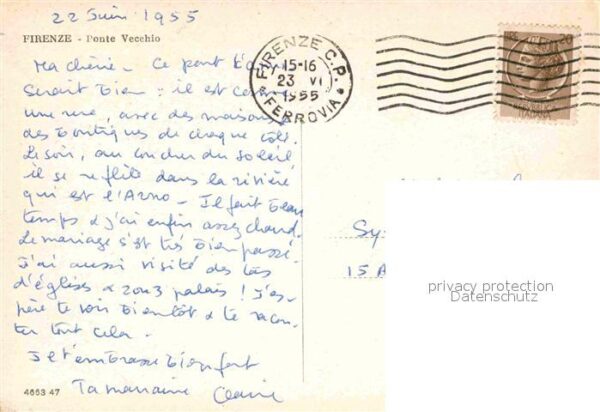 22 Juin 1955
FIRENZE - Ponte Vecchio
Ma chérie - Ce pont t'
serait bien : il est comme
une rue, avec des maisons
des boutiques de chaque côté.
Le soir, au coucher du soleil
il se reflète dans la rivière
qui est l'Arno - Il fait beau
temps & j'ai enfin assez chaud.
Le mariage s'est très bien passé.
J'ai aussi visité des tas
d'églises & 2 ou 3 palais ! J'es-
père te voir bientôt & te racon-
ter tout cela.
Je t'embrasse bien fort
Ta marraine Claire
4663 47
FIRENZE C.P.
15-16
23 VI
1955
FERROVIA
ITALIANA
Sy
15 A
privacy protection
Datenschutz